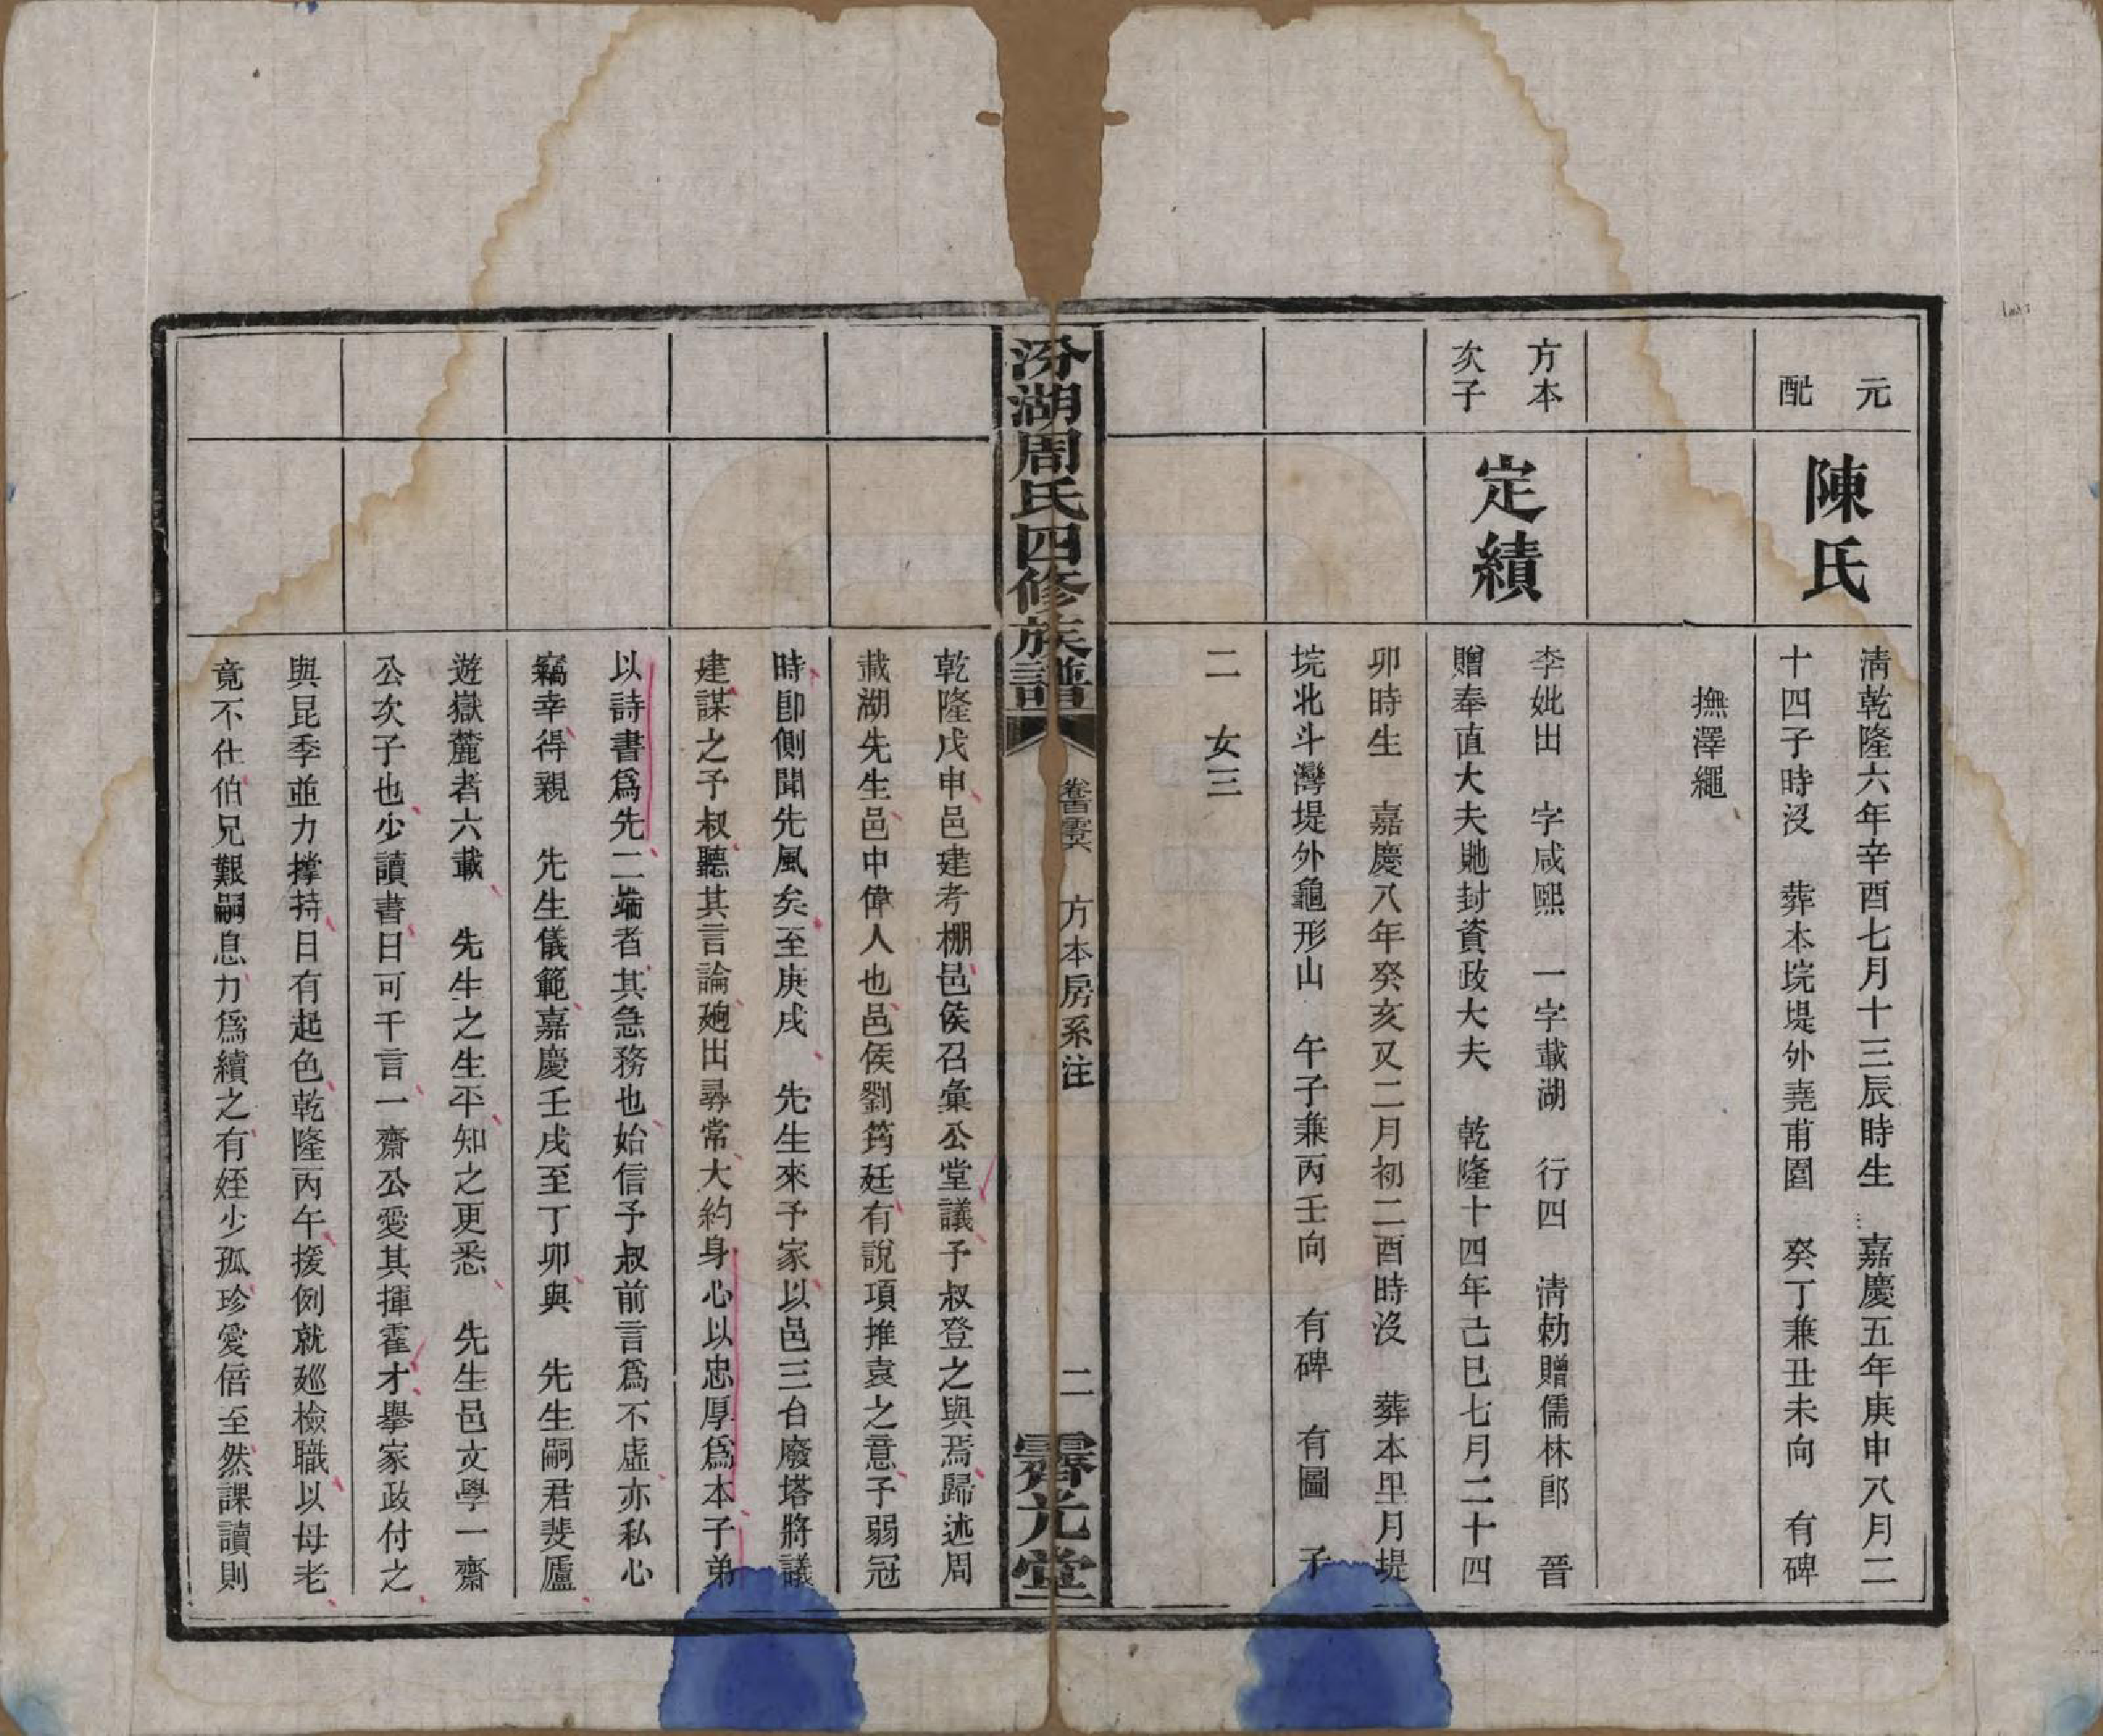 元配
陳氏
清乾隆六年辛酉七月十三辰時生　嘉慶五年庚申八月二
十四子時沒　葬本垸堤外堯甫圍　癸丁兼丑未向　有碑
撫澤繩
方本次子
定績
李妣出　字咸熙　一字載湖　行四　清勅贈儒林郎　晉
贈奉直大夫貤封資政大夫　乾隆十四年己巳七月二十四
卯時生　嘉慶八年癸亥又二月初二酉時沒　葬本里月堤
垸北斗灣堤外龜形山　午子兼丙壬向　有碑　有圖　子
二　女三
汾湖周氏四修族譜　方本房系注　二　霽光堂
乾隆戊申邑建考棚邑侯召彙公堂議予叔登之與焉歸述周
載湖先生邑中偉人也邑侯劉筠廷有說項推袁之意予弱冠
時卽側聞先風矣至庚戌　先生來予家以邑三台廢塔將議
建謀之予叔聽其言論逈出尋常大約身心以忠厚爲本子弟
以詩書爲先二端者其急務也始信予叔前言爲不虛亦私心
竊幸得親　先生儀範嘉慶壬戌至丁卯與　先生嗣君斐廬
遊嶽麓者六載　先生之生平知之更悉　先生邑文學一齋
公次子也少讀書日可千言一齋公愛其揮霍才舉家政付之
與昆季並力撐持日有起色乾隆丙午援例就廵檢職以母老
竟不仕伯兄艱嗣息力爲續之有姪少孤珍愛倍至然課讀則